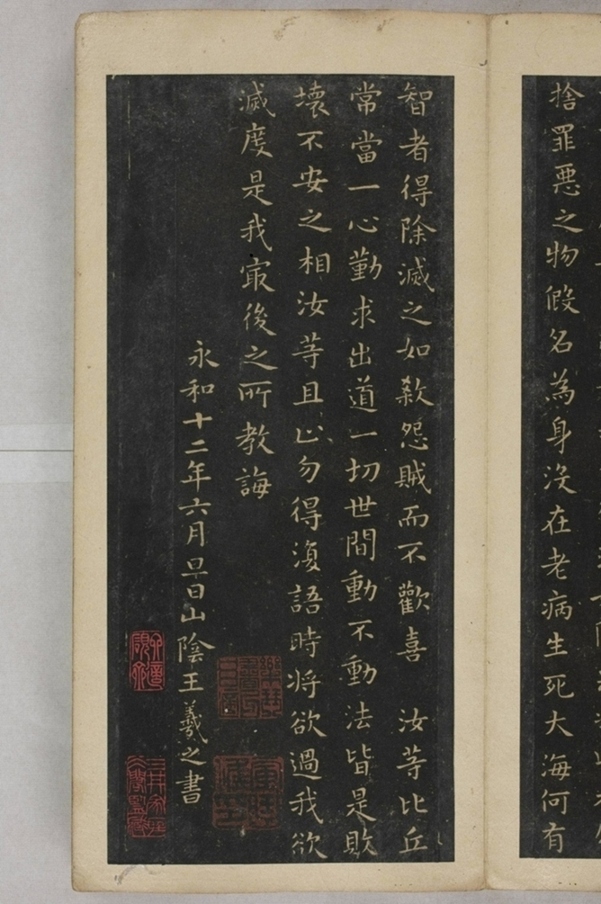 捨罪惡之物假名為身没在老病生死大海何有
智者得除滅之如殺怨賊而不歡喜 汝等比丘
常當一心勤求出道一切世間動不動法皆是敗
壞不安之相汝等且止勿得復語時将欲過我欲
滅度是我㝡後之所教誨
永和十二年六月旦日山陰王羲之書